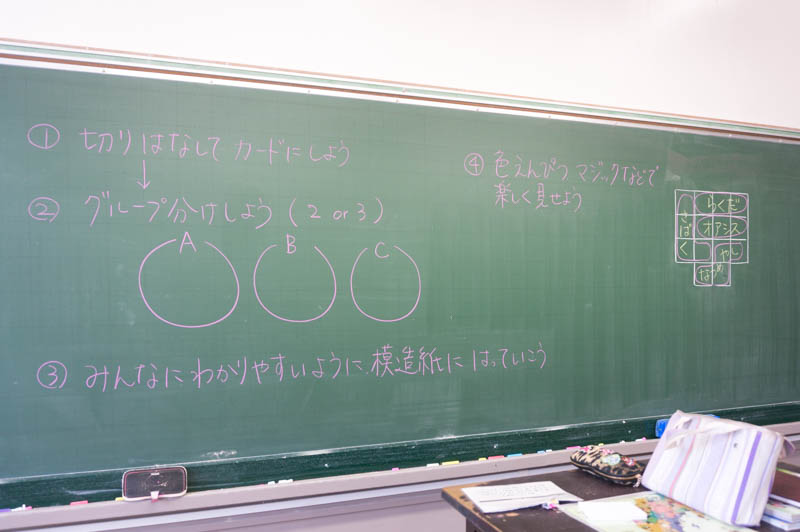 ① 切りはなして カードにしよう
② グループ分けしよう (2 or 3)
A B C
③ みんなにわかりやすいように、模造紙にはっていこう
④ 色えんぴつ マジックなどで
楽しく見せよう
さばく
らくだ
オアシス
やし
なつめ